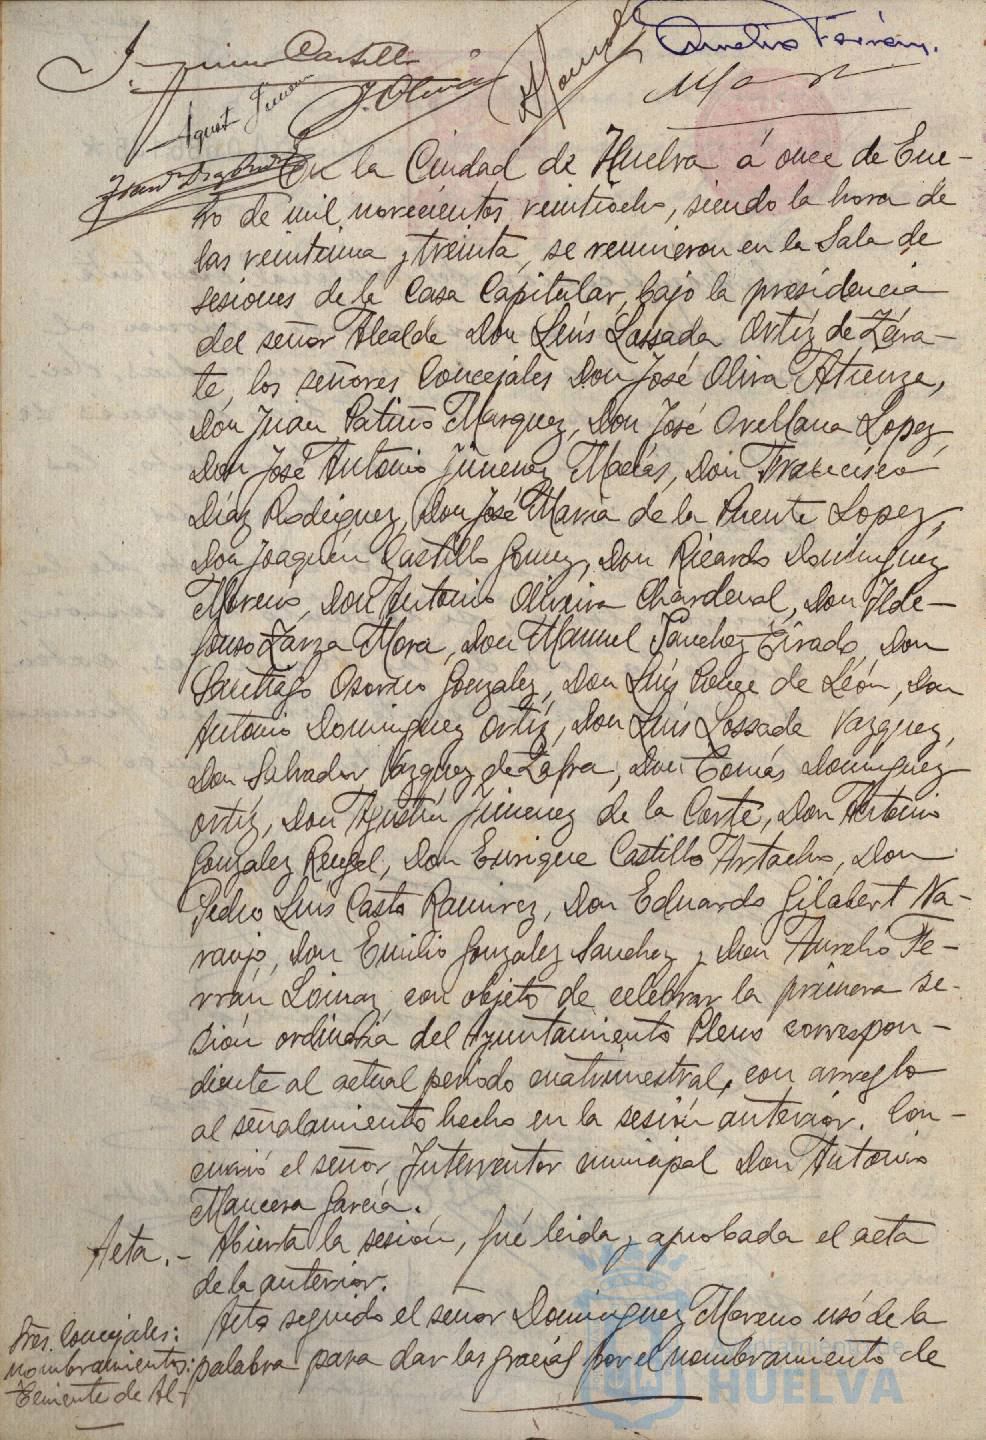 Joaquin Castillo
J. Oliva
Aurelio Ferrán.
En la Ciudad de Huelva á once de Ene-
ro de mil novecientos veintiocho, siendo la hora de
las veintiuna y treinta, se reunieron en la Sala de
sesiones de la Casa Capitular, bajo la presidencia
del señor Alcalde Don Luís Lossada Ortíz de Zára-
te, los señores Concejales Don José Oliva Atienza,
Don Juan Patiño Marquez, Don José Orellana Lopez,
Don José Antonio Jimenez Macías, Don Francisco
Díaz Rodriguez, Don José María de la Puente Lopez,
Don Joaquín Castillo Gomez, Don Ricardo Dominguez
Moreno, Don Antonio Oliveira Chardenal, Don Ilde-
fonso Zarza Mora, Don Manuel Sanchez Tirado, Don
Santiago Osorno Gonzalez, Don Luís Ponce de León, Don
Antonio Dominguez Ortíz, Don Luís Lossada Vazquez,
Don Salvador Vazquez de Zafra, Don Tomás Dominguez
Ortíz, Don Agustín Jimenez de la Corte, Don Antonio
Gonzalez Rengel, Don Enrique Castillo Artacho, Don
Pedro Luis Casto Ramirez, Don Eduardo Gilabert Na-
ranjo, Don Emilio Gonzalez Sanchez y Don Aurelio Fe-
rrán Loinaz, con objeto de celebrar la primera se-
sión ordinaria del Ayuntamiento Pleno correspon-
diente al actual periodo cuatrimestral, con arreglo
al señalamiento hecho en la sesión anterior. Con-
currió el señor Interventor municipal Don Antonio
Mancera García.
Acta.- Abierta la sesión, fué leida y aprobada el acta
de la anterior.
Sres. Concejales: Acto seguido el señor Dominguez Moreno usó de la
nombramientos: palabra para dar las gracias por el nombramiento de
Teniente de Al-
Ayuntamiento de
HUELVA